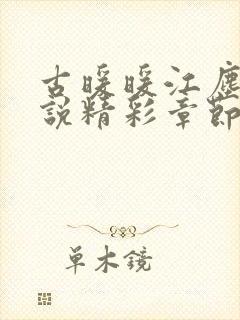 古暖暖江塵
說精彩章節
單木鏡